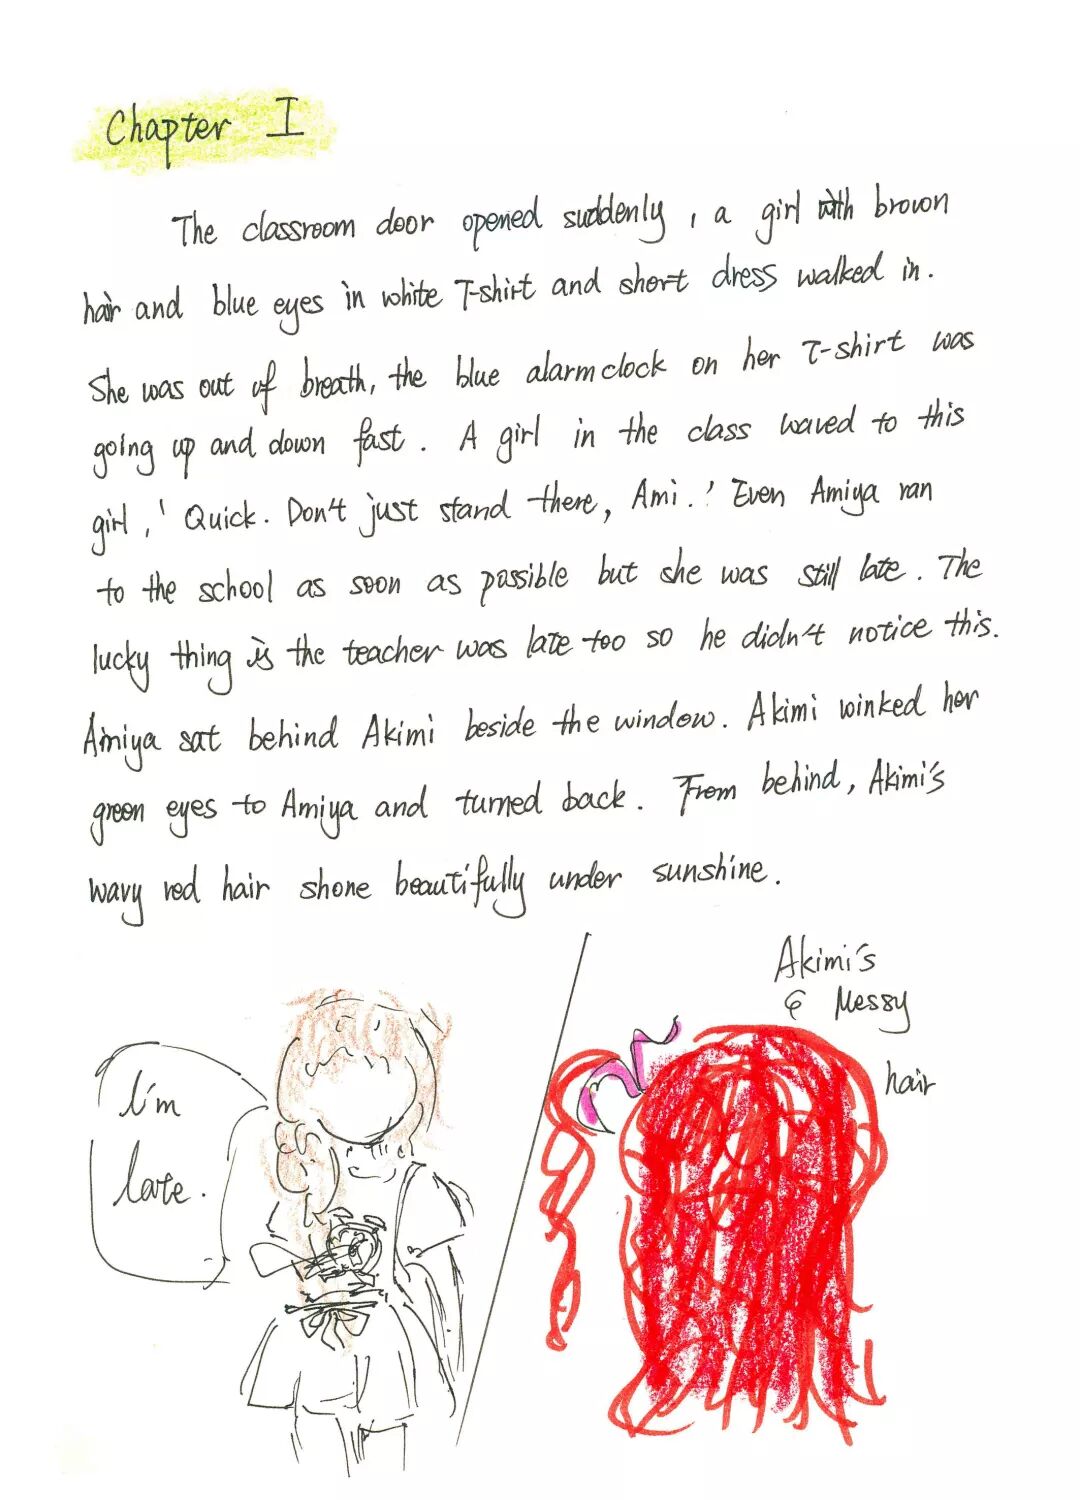 Chapter I
The classroom door opened suddenly, a girl with brown
hair and blue eyes in white T-shirt and short dress walked in.
She was out of breath, the blue alarm clock on her T-shirt was
going up and down fast. A girl in the class waved to this
girl, 'Quick. Don't just stand there, Ami.' Even Amiya ran
to the school as soon as possible but she was still late. The
lucky thing is the teacher was late too so he didn't notice this.
Amiya sat behind Akimi beside the window. Akimi winked her
green eyes to Amiya and turned back. From behind, Akimi's
wavy red hair shone beautifully under sunshine.
I'm
late.
Akimi's
& Messy
hair